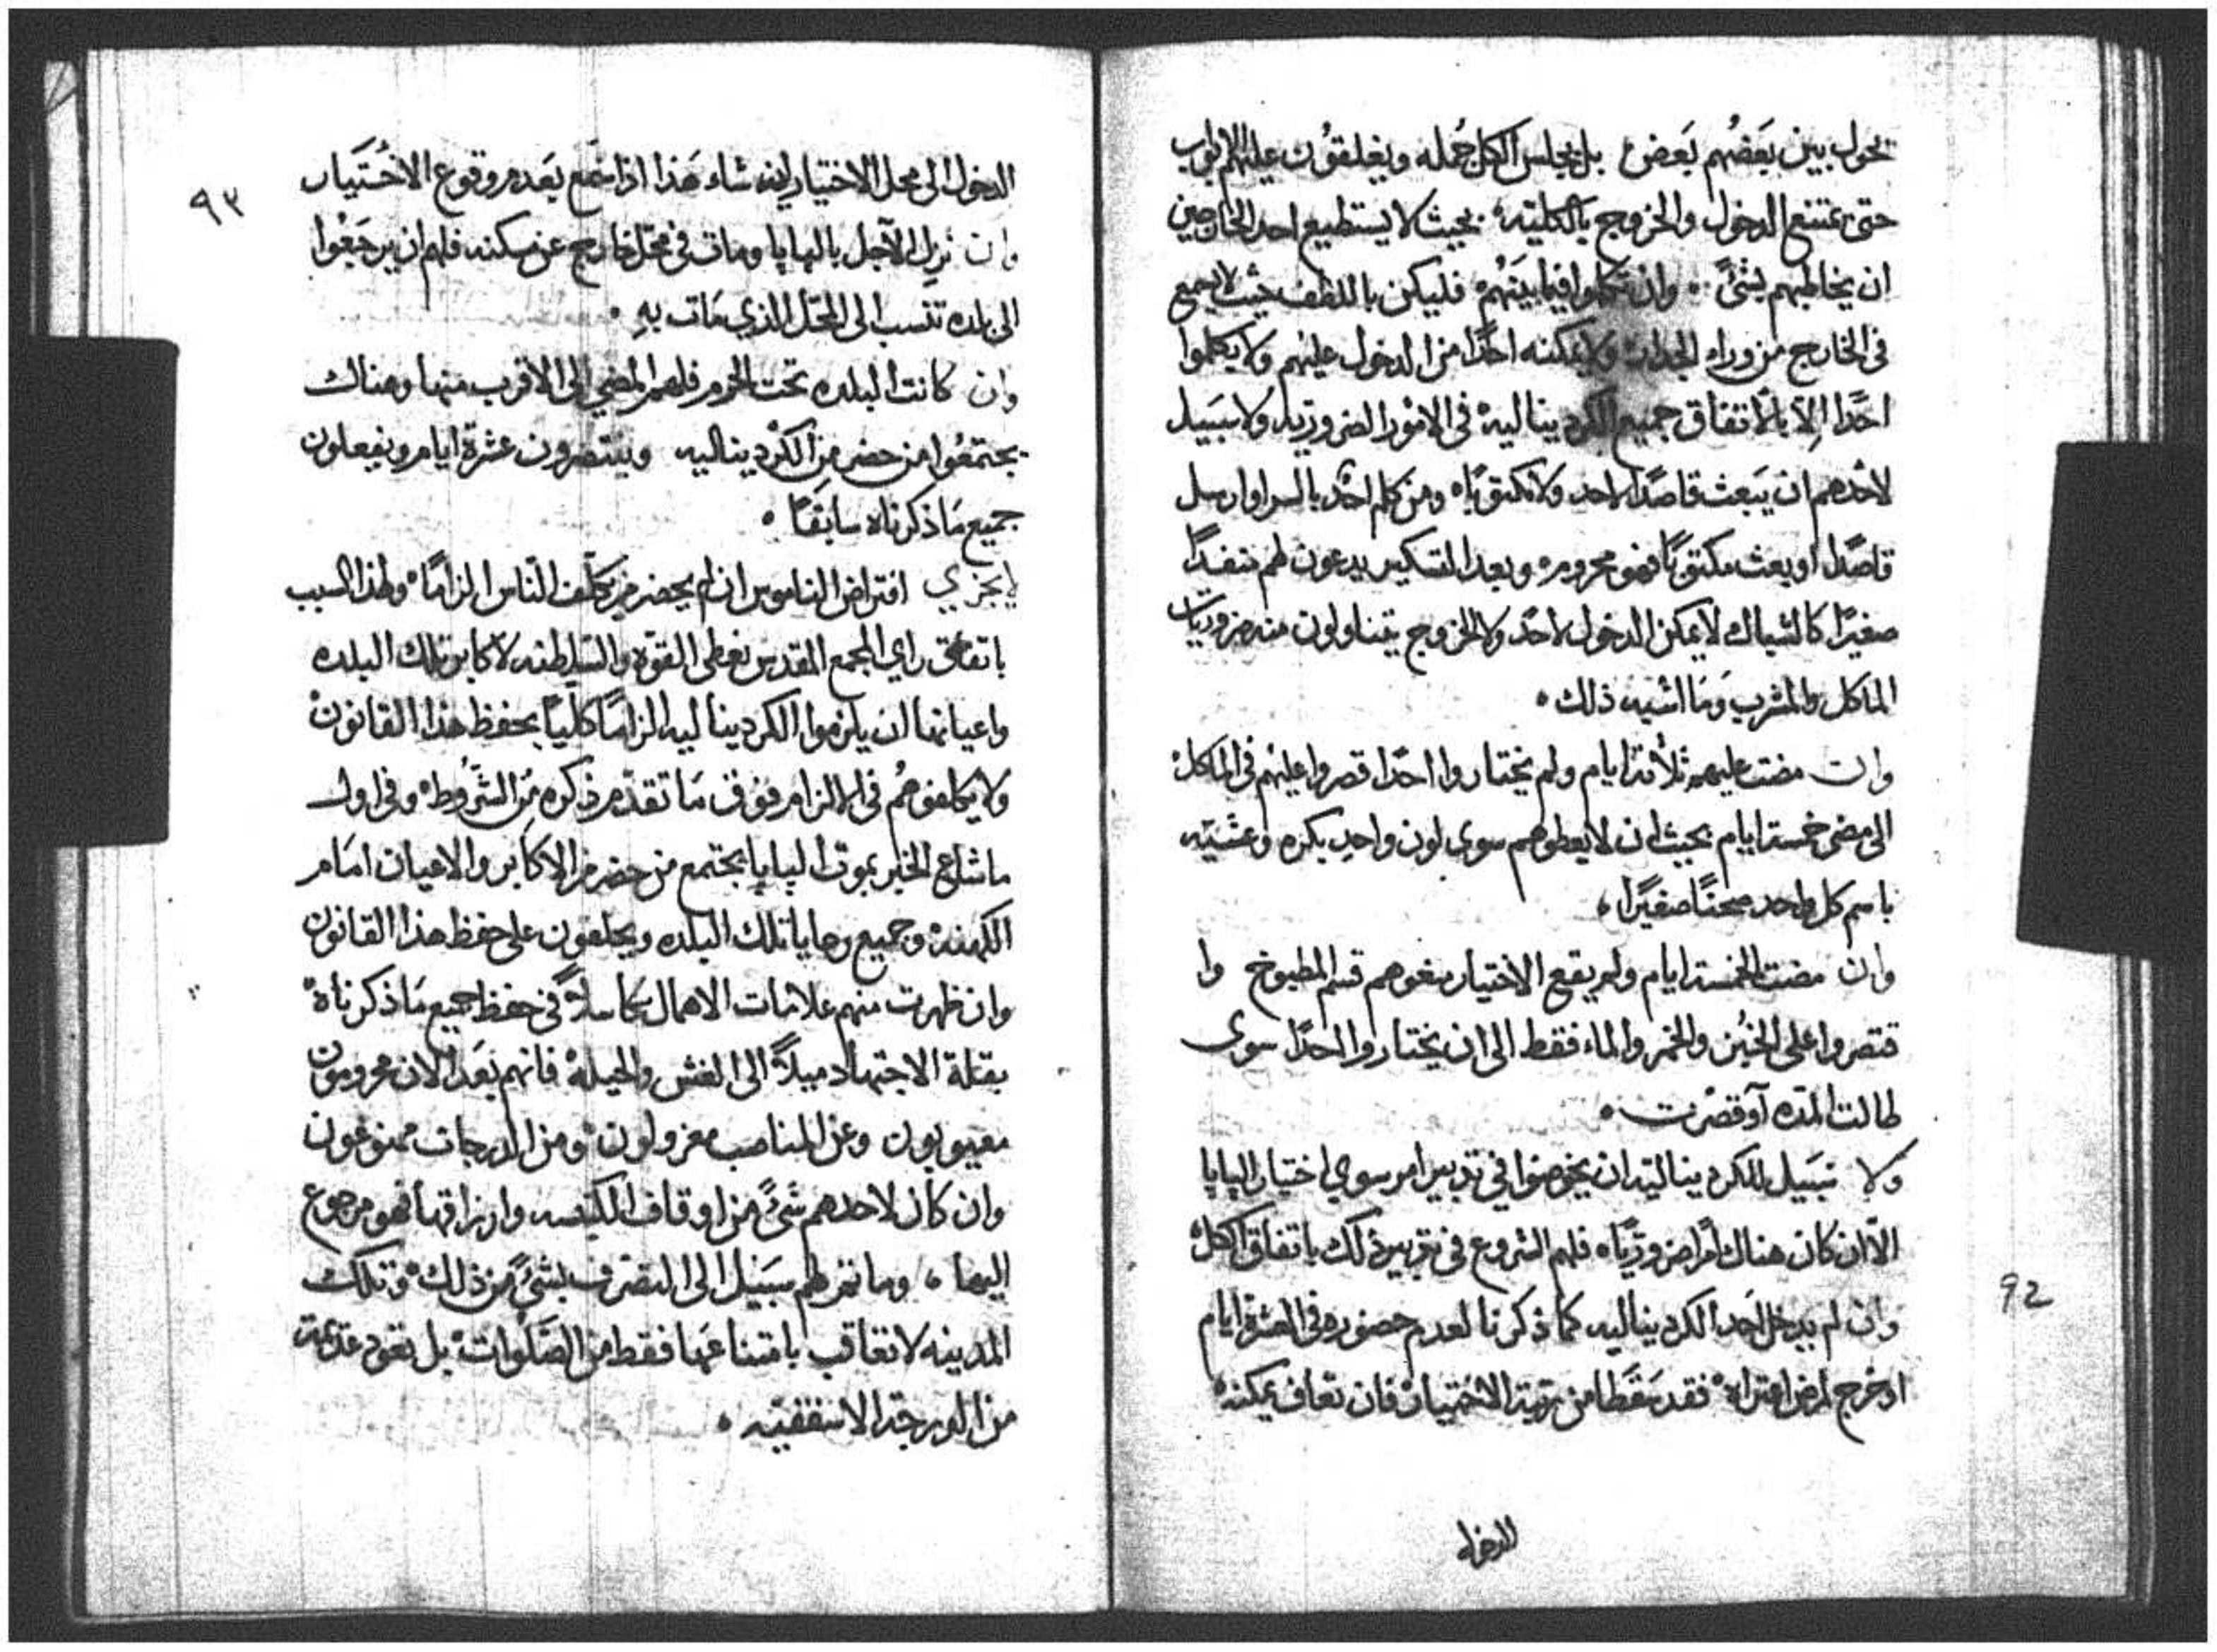 تحول بين بَعَضُهم بَعَض بل يجلس الكل جُمله ويغلقوُن عليهم الابواب
حتى يمتنع الدخول والخروج بالكليّه بحيث لا يستطيع احد الخارجين
ان يخاطبهم بشئً ٠٠ وان تكلموا فيما بينهُم فليكن باللطف حيث لا يسمع
فى الخارج من وراء الجدران ولا يمكنه احدًا من الدخول عليهم ولا يكلموا
احدًا الِاّ بالاتفاق جميع الكرديناليه في الامور الضروريه ولا سَبيل
لاحدهم ان يَبعث قاصدًا لاحد ولا مكتوبًا٠ ومن كلم احدٌ بالسر او ارسل
قاصدًا او بعث مكتوبًا فهو محروم٠ وبعد التسكير يدعون لهم منفدًا
صغيرًا كالشباك لا يمكن الدخول لاحد ولا الخروج يتناولون منه ضروريّات
الماكل والمشرب وَمَا اشبه ذلك ٠
وان مضت عليهم ثلاثة ايام ولم يختاروا احدًا قصروا عليهم في الماكل
الى مضى خمسة ايام بحيث ان لا يعطوهم سوى لون واحدٍ بكره وعشيّه
باسم كل واحد صحنًا صغيرًا ٠
وان مضت الخمسة ايام ولم يقع الاختيار منعوهم قسم المطبوخ وا
قتصروا على الخُبز والخمر والماء فقط الى ان يختاروا احدًا سوى
طالت المده او قصرت ٠
ولا سَبيل للكرديناليه ان يخوضوا في تدبير امر سوى اختيار البابا
الاّ ان كان هناك امرًا ضروريًا٠ فلهم الشروع في تدبير ذلك باتفاق الكل
وان لم يدخل احد الكرديناليه كما ذكرنا لعدم حضوره في العشرة ايام
او خرج لمرض اعتراه٠ فقد سَقَط من رتبة الاختيار٠ فان تعاف يمكنه
الدخول
92
الدخول الى محل الاختيار اِن شاء هَذا اذا سَمع بَعد مروقوع الاختَيار
وان نزل الآجل بالبابا ومات في محل خارج عن سكنه فلهم ان يرجَعُوا
الى بلده تنسب الى المحَل الذي مَات بهِ ٠
وان كانت البلده تحت الحرم فلهم المضي الى الاقرب منها وهناك
يجتمعُوا من حضر من الكرديناليه وينتضرون عشرة ايام ويفعلون
جميع مَا ذكرناه سابقًا ٠
لا يجزي افتراض الناموس ان لم يحضر من يكلّف النّاس الزامًا٠ ولهذا السبب
باتفاق راي المجمع المقدس نعطى القوّه والسَلطنه لاكابر تلك البلده
واعيانها ان يلزموا الكرديناليه الزامًا كليًا بحفظ هذا القانون
ولا يكلفوهُم في الالزام فوق مَا تقدّم ذكره مِن الشرُوط٠ وفي اول
ما شاع الخبر بموت البابا يجتمع من حضر من الاكابر والاعيان امَام
الكهنه وجميع رعايا تلك البلده ويحلفون على حفظ هذا القانون
وان ظهرت منهم علامات الاهمال تكاسلاً في حفظ جميع مَا ذكرناهُ
بقلة الاجتهاد ميلاً الى الغش والحيله فانهم بَعَد الان محرومون
معيوبون وعن المناصب معزولون٠ ومن الدرجات ممنوعون
وان كان لاحدهم شئً من اوقاف الكنيسه وارزاقها فهو مرجوع
اليها ٠ وما ثم لهم سبَيل الى التصّرف بشئً من ذلك٠ وتلك
المدينه لا تعاقب بامتناعَها فقط من الصَلوات٠ بل تعود عديمة
من الدرجة الاسقفيّه ٠
٩٣